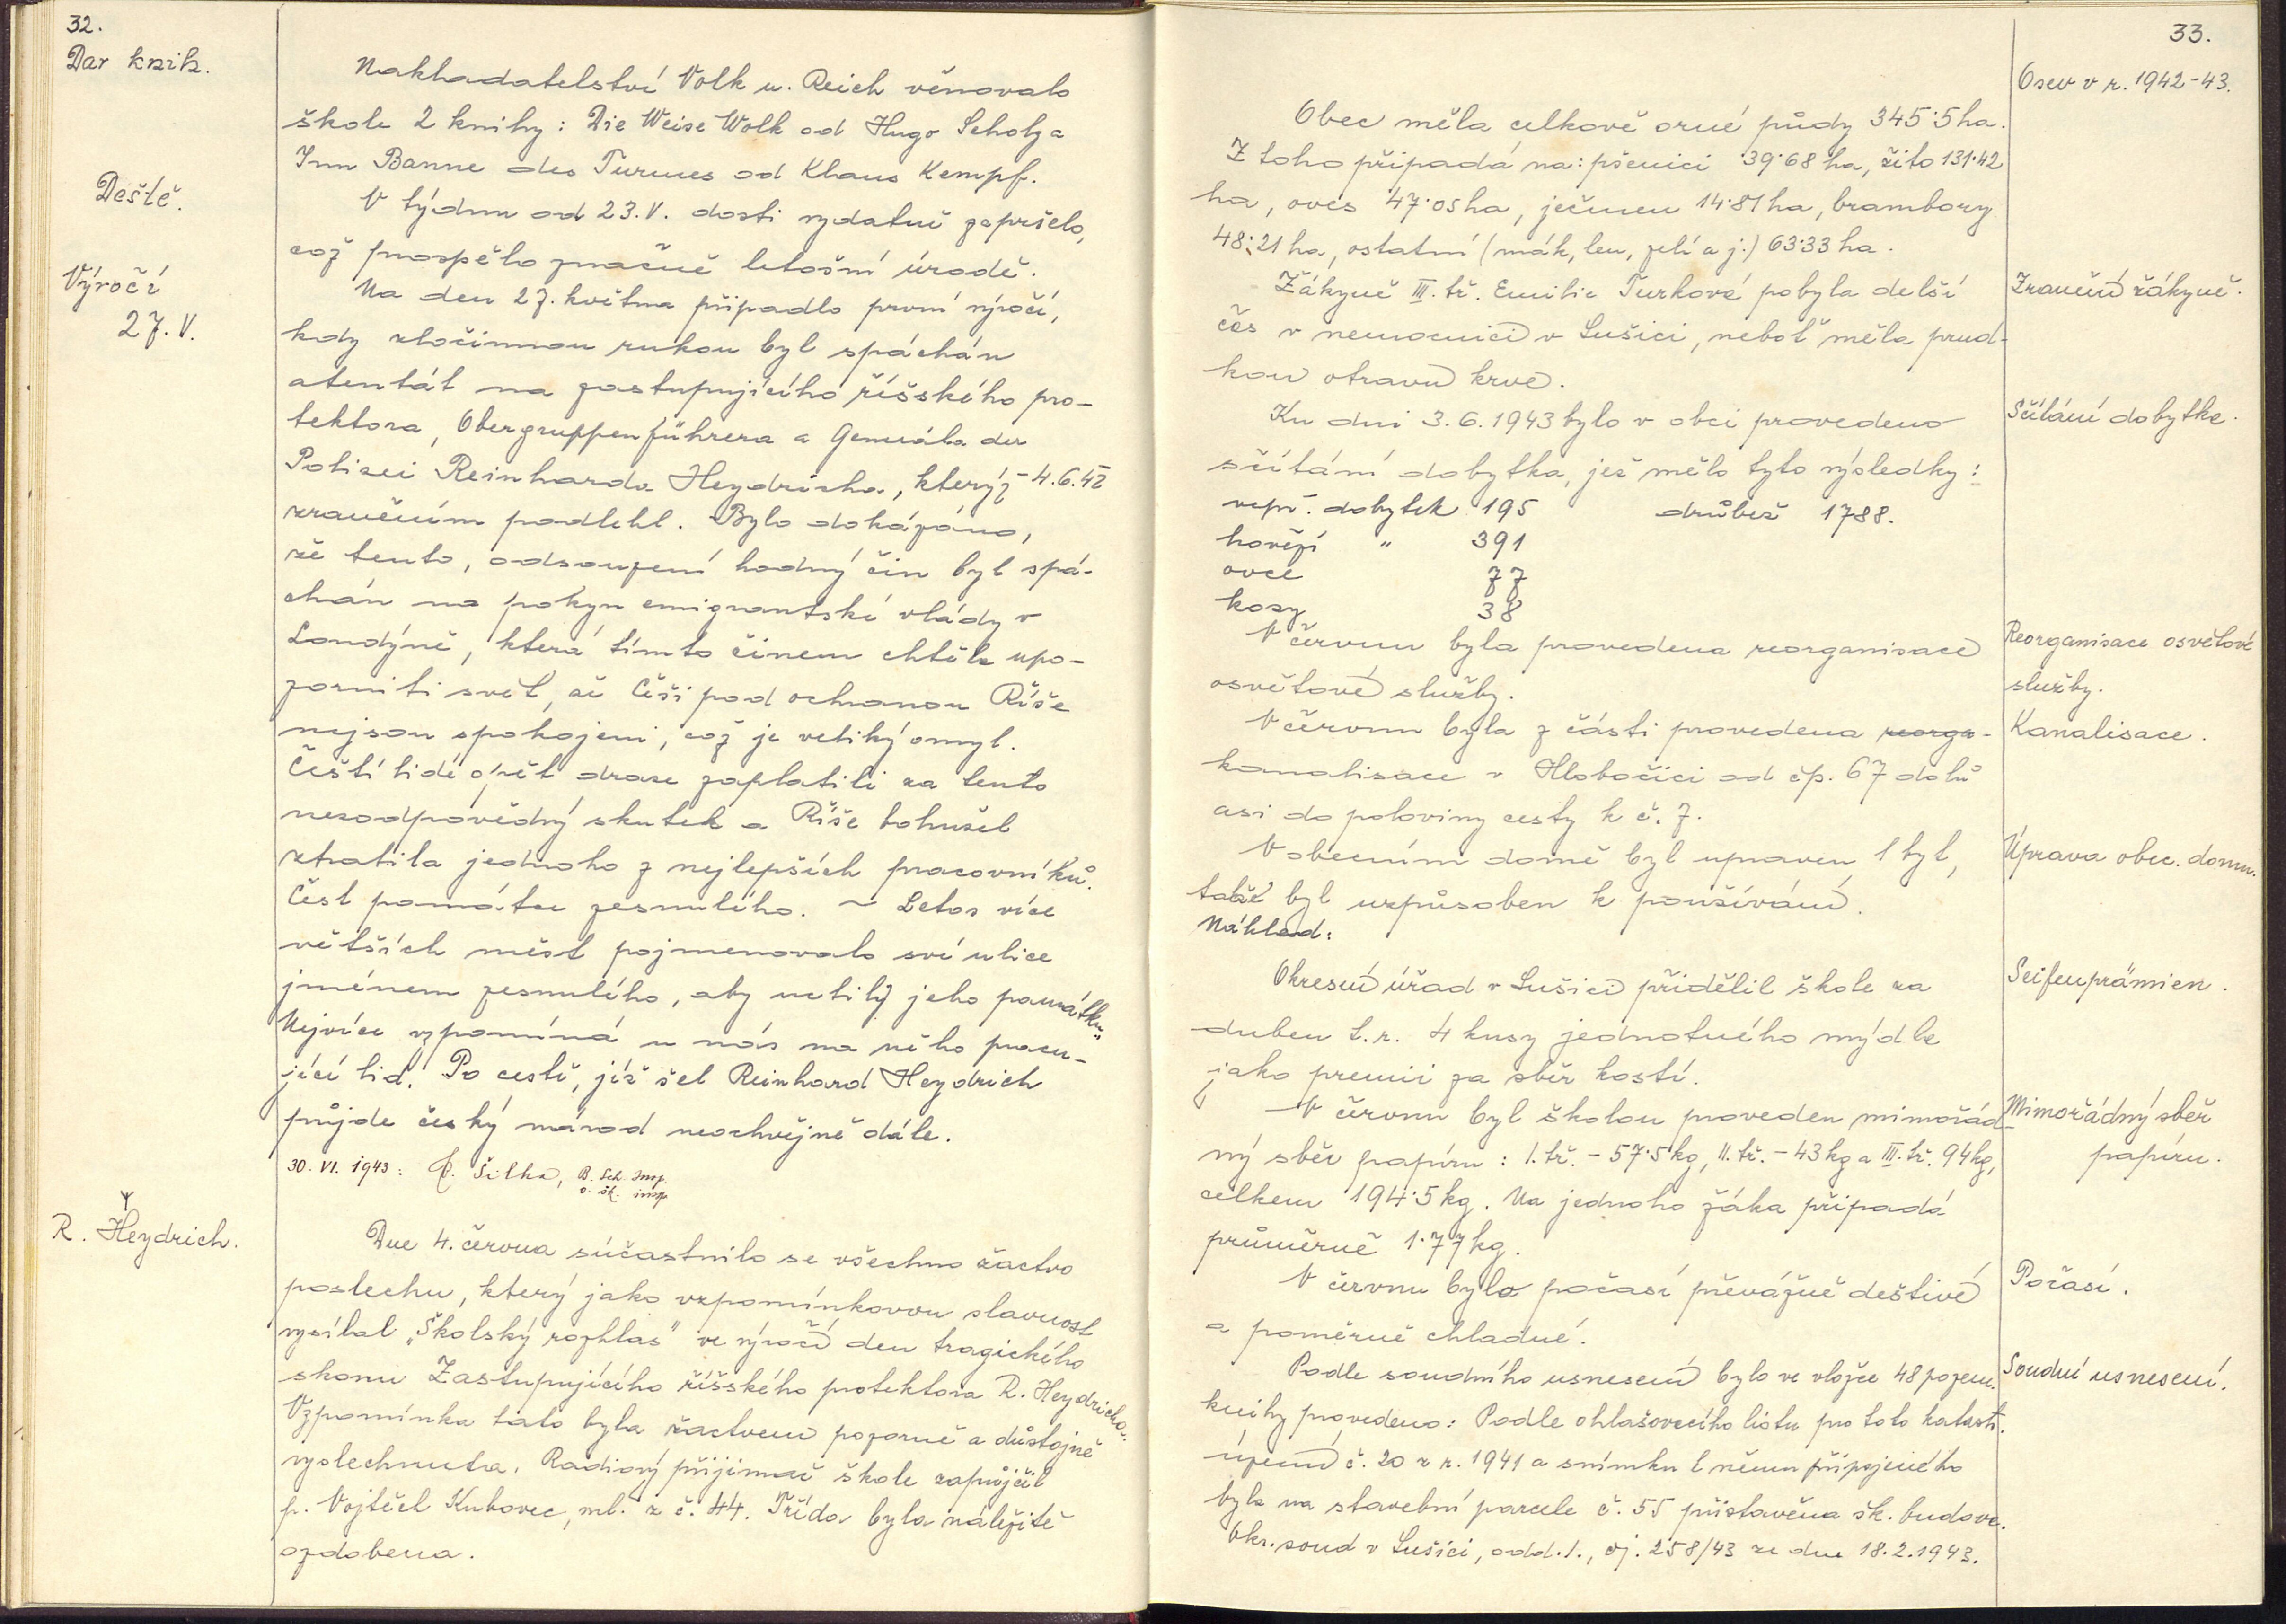 32.
Dar knih.
Nakladatelství Volk u. Reich věnovalo
škole 2 knihy: Die Weise Wolk od Hugo Scholz a
Inn Banne des Turmes od Klaus Kempf.
Deště.
V týdnu od 23. V. dosti vydatně zapršelo,
což prospělo značně letošní úrodě.
Výročí
27. V.
Na den 27. května připadlo první výročí,
kdy zločinnou rukou byl spáchán
atentát na zastupujícího říšského pro-
tektora, Obergruppenführera a Generála der
Polizei Reinharda Heydricha, který - 4.6.42
zraněním podlehl. Bylo dokázáno,
že tento, odsouzení hodný čin byl spá-
chán na pokyn emigrantské vlády v
Londýně, která tímto činem chtěla upo-
zorniti svět, že Češi pod ochranou Říše
nejsou spokojeni, což je veliký omyl.
Čeští lidé opět draze zaplatili za tento
nezodpovědný skutek a Říše bohužel
ztratila jednoho z nejlepších pracovníků.
Čest památce zesnulého. ~ Letos více
větších měst pojmenovalo své ulice
jménem zesnulého, aby uctily jeho památku.
Nejvíce vzpomíná u nás na něho pracu-
jící lid. Po cestě, jíž šel Reinhard Heydrich
půjde český národ neochvějně dále.
30. VI. 1943: Šilha, B. Sch. Insp.
o. šk. insp.
R. Heydrich.
Dne 4. června súčastnilo se všechno žactvo
poslechu, který jako vzpomínkovou slavnost
vysílal „Školský rozhlas" ve výroční den tragického
skonu Zastupujícího říšského protektora R. Heydricha.
Vzpomínka tato byla žactvem pozorně a důstojně
vyslechnuta. Radiový přijímač škole zapůjčil
p. Vojtěch Kubovec, ml. z č. 44. Třída byla náležitě
ozdobena.
33.
Osev v r. 1942-43.
Obec měla celkově orné půdy 345·5 ha.
Z toho připadá na: pšenici 39·68 ha, žito 131·42
ha, oves 47·05 ha, ječmen 14·81 ha, brambory
48·21 ha, ostatní (mák, len, zelí a j.) 63·33 ha.
Zranění žákyně.
Žákyně III. tř. Emilie Turková pobyla delší
čas v nemocnici v Sušici, neboť měla prud-
kou otravu krve.
Sčítání dobytka.
Ku dni 3. 6. 1943 bylo v obci provedeno
sčítání dobytka, jež mělo tyto výsledky:
vepř. dobytek 195 drůbež 1788.
hovězí " 391
ovce 77
kozy 38
Reorganisace osvětové
služby.
V červnu byla provedena reorganisace
osvětové služby.
Kanalisace.
V červnu byla z části provedena reorga-
kanalisace v Hlobočici od čp. 67 dolů
asi do poloviny cesty k č. 7.
Úprava obec. domu.
V obecním domě byl upraven 1 byt,
také byl uzpůsoben k používání.
Náklad:
Seifenprämien.
Okresní úřad v Sušici přidělil škole za
duben t. r. 4 kusy jednotného mýdla
jako premii za sběr kostí.
Mimořádný sběr
papíru.
V červnu byl školou proveden mimořád-
ný sběr papíru: I. tř. - 57·5 kg, II. tř. - 43 kg a III. tř. 94 kg,
celkem 194·5 kg. Na jednoho žáka připadá
průměrně 1·77 kg.
Počasí.
V červnu bylo počasí převážně deštivé
a poměrně chladné.
Soudní usnesení.
Podle soudního usnesení bylo ve vložce 48 pozem.
knihy provedeno: Podle ohlašovacího listu pro toto katastr.
území č. 20 z r. 1941 a snímku k němu připojeného
byla na stavební parcele č. 55 přistavěna šk. budova.
Okr. soud v Sušici, odd. I., čj. 258/43 ze dne 18. 2. 1943.